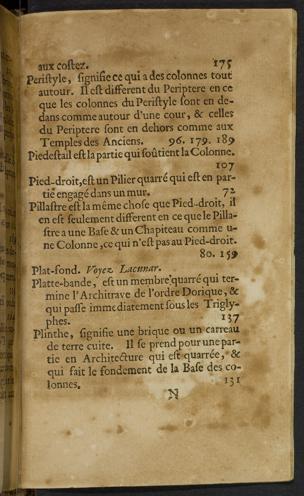 aux costez. 175
Peristyle, signifie ce qui a des colonnes tout
autour. Il est different du Periptere en ce
que les colonnes du Peristyle sont en de-
dans comme autour d'une cour, & celles
du Periptere sont en dehors comme aux
Temples des Anciens. 96. 179. 189
Piedestail est la partie qui soûtient la Colonne.
107
Pied-droit, est un Pilier quarré qui est en par-
tie engagé dans un mur. 72
Pillastre est la même chose que Pied-droit, il
en est seulement different en ce que le Pilla-
stre a une Base & un Chapiteau comme u-
ne Colonne, ce qui n'est pas au Pied-droit.
80. 159
Plat-fond. Voyez Lacunar.
Platte-bande, est un membre quarré qui ter-
mine l'Architrave de l'ordre Dorique, &
qui passe immediatement sous les Trigly-
phes. 137
Plinthe, signifie une brique ou un carreau
de terre cuite. Il se prend pour une par-
tie en Architecture qui est quarrée, & 
qui fait le fondement de la Base des co-
lonnes. 131
N